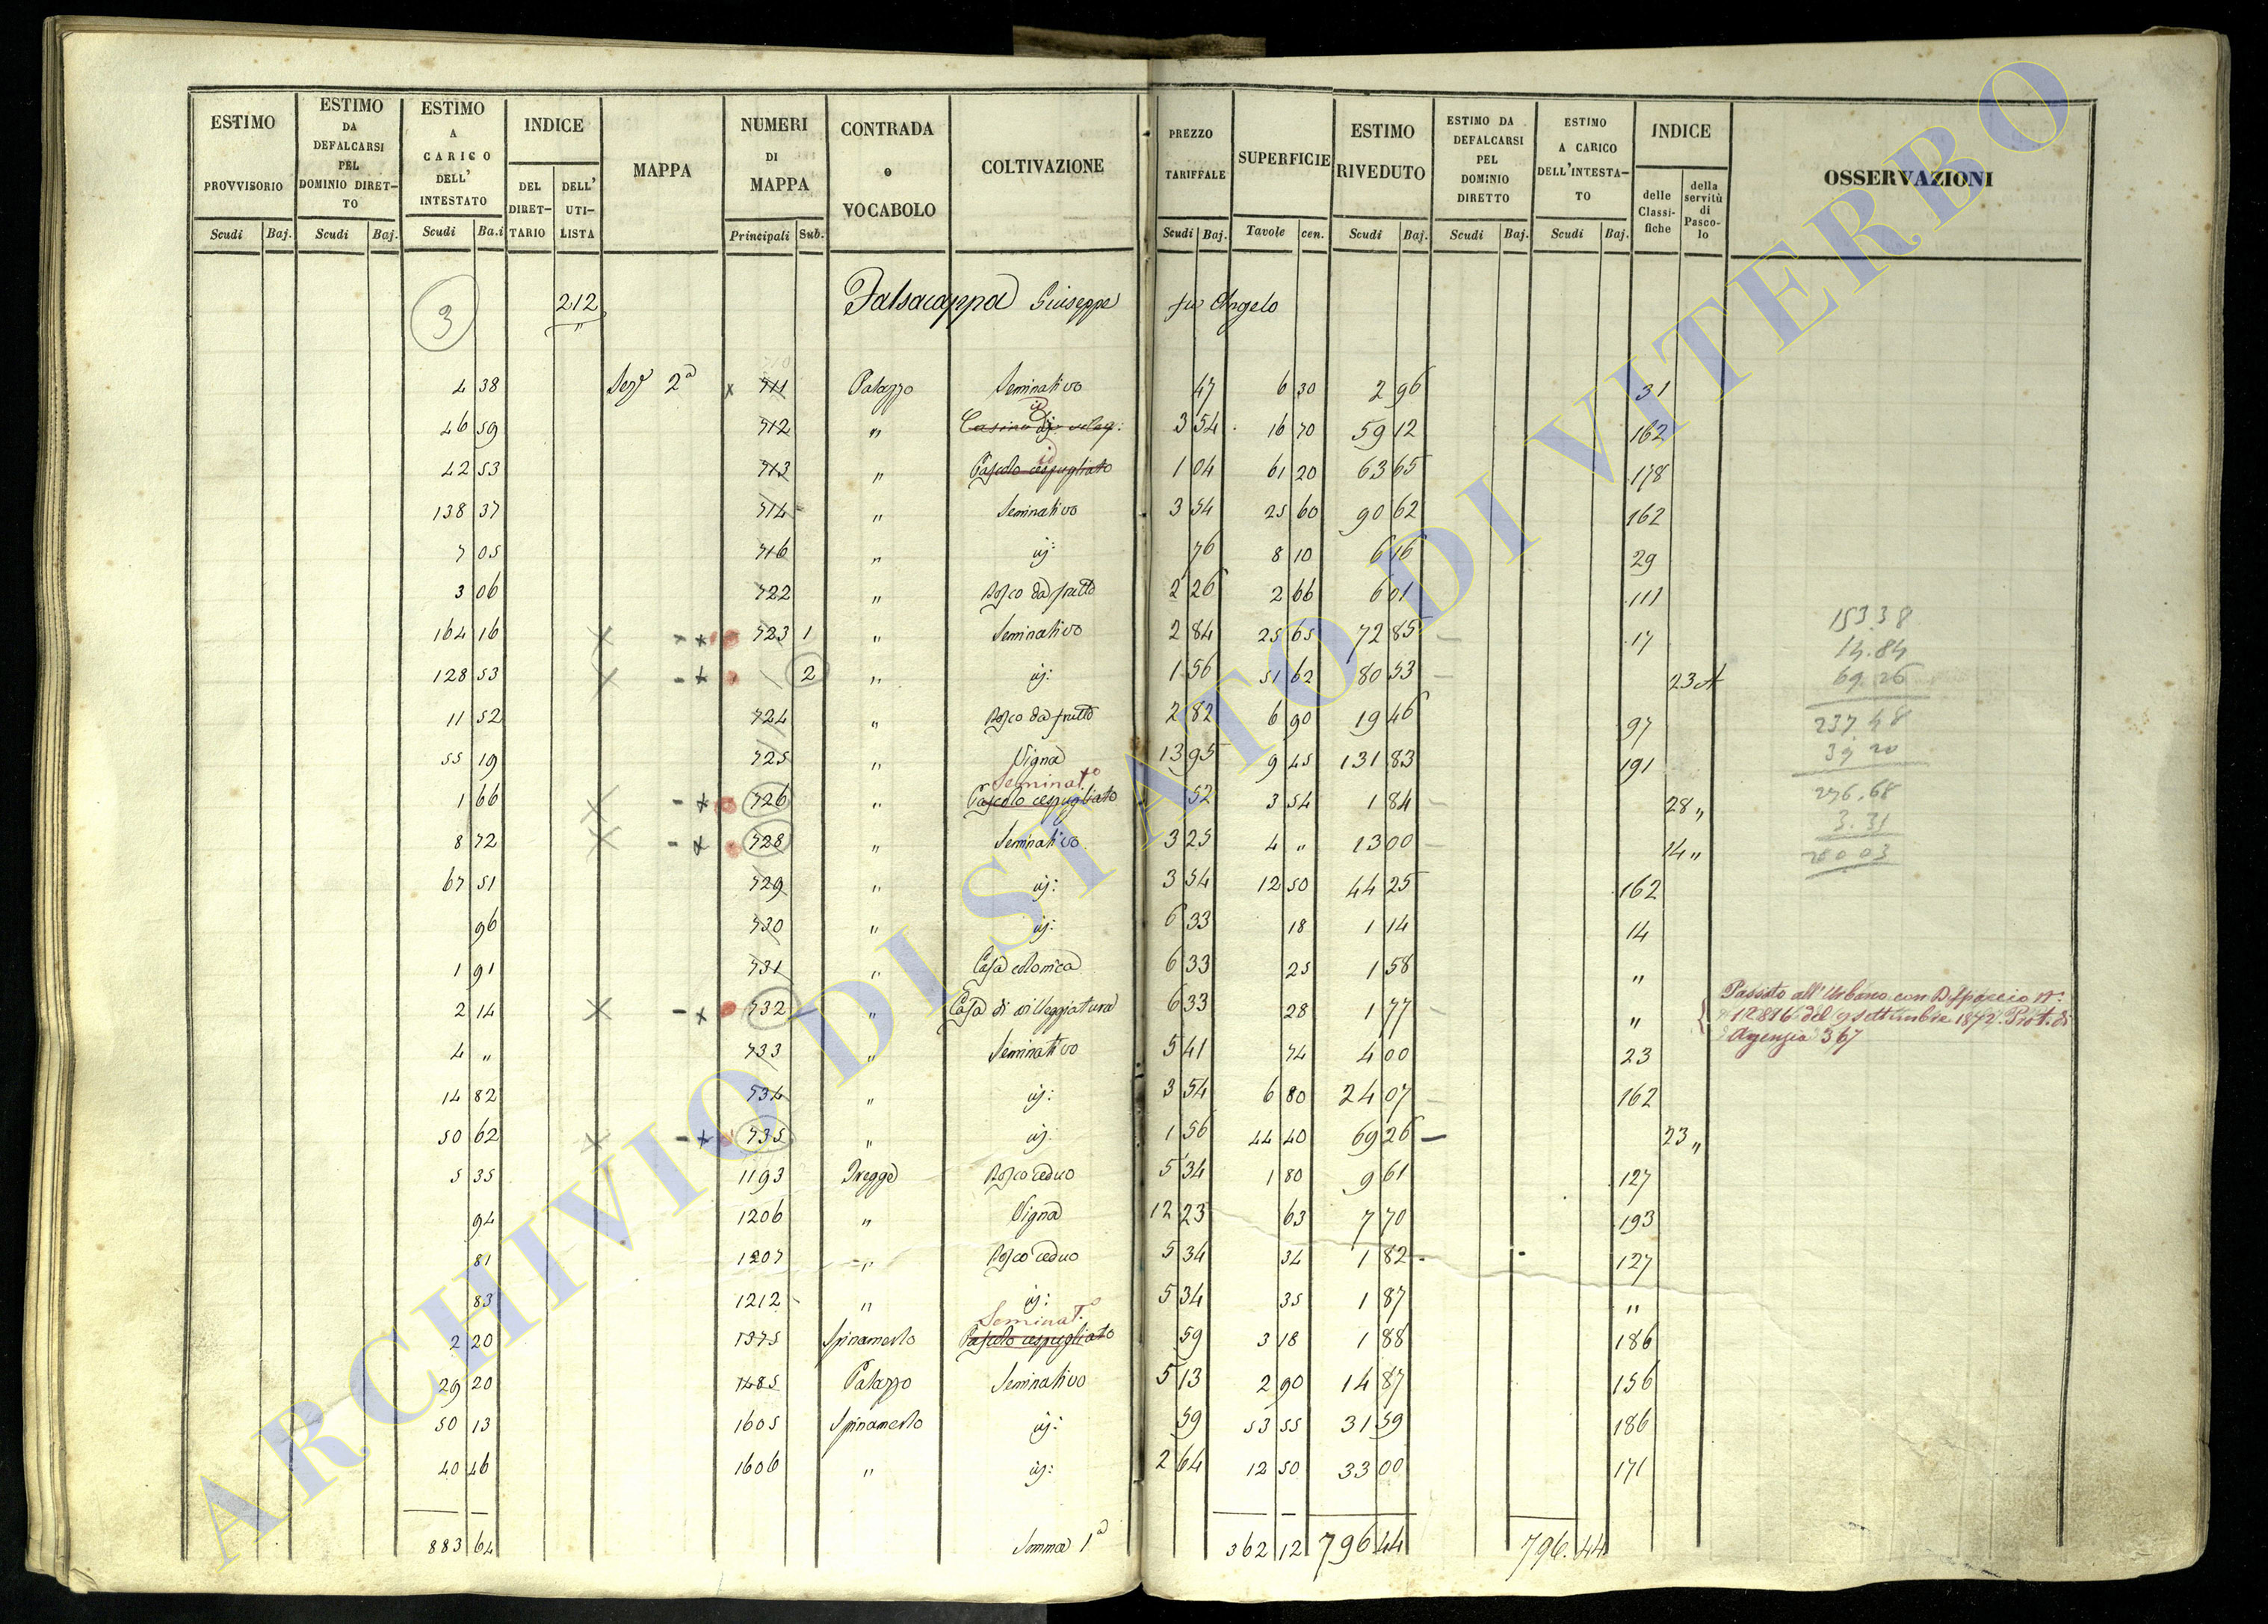 ESTIMO PROVVISORIO Scudi Baj.
ESTIMO DA DEFALCARSI PEL DOMINIO DIRETTO Scudi Baj.
ESTIMO A CARICO DELL' INTESTATO Scudi Ba.i
INDICE DEL DIRETTARIO DELL' UTILISTA
MAPPA
NUMERI DI MAPPA Principali Sub.
CONTRADA o VOCABOLO
COLTIVAZIONE
PREZZO TARIFFALE Scudi Baj.
SUPERFICIE Tavole cen.
ESTIMO RIVEDUTO Scudi Baj.
ESTIMO DA DEFALCARSI PEL DOMINIO DIRETTO Scudi Baj.
ESTIMO A CARICO DELL'INTESTATO Scudi Baj.
INDICE delle Classifiche della servitù di Pascolo
OSSERVAZIONI
3 212 Falsacappa Giuseppe fu Angelo
4 38 Sez.e 2a x 711 Palazzo Seminativo 47 6 30 2 96 31
46 59 712 " id 3 54 16 70 59 12 162
42 53 713 " Pascolo cespugliato id 1 04 61 20 63 65 178
138 37 714 " Seminativo 3 54 25 60 90 62 162
7 05 716 " id: 76 8 10 6 16 29
3 06 722 " Bosco da frutto 2 26 2 66 6 01 111
164 16 x - x 723 1 " Seminativo 2 84 25 65 72 85 17
128 53 x - x 2 " id: 1 56 51 62 80 53 23 A
11 52 724 " Bosco da frutto 2 82 6 90 19 46 97
55 19 725 " Vigna 13 95 9 45 131 83 191
Seminat.o
1 66 x - x 726 " Pascolo cespugliato 52 3 54 1 84 28 "
8 72 x - x 728 " Seminativo 3 25 4 " 13 00 14 "
67 51 729 " id: 3 54 12 50 44 25 162
96 730 " id: 6 33 18 1 14 14
1 91 731 " Casa colonica 6 33 25 1 58 "
2 14 x - x 732 " Casa di villeggiatura 6 33 28 1 77 "
4 " 733 " Seminativo 5 41 74 4 00 23
14 82 734 " id: 3 54 6 80 24 07 162
50 62 x - x 735 " id: 1 56 44 40 69 26 23 "
5 35 1193 Bosco ceduo 5 34 1 80 9 61 127
94 1206 " Vigna 12 23 63 7 70 193
81 1207 " Bosco ceduo 5 34 34 1 82 127
83 1212 " id: 5 34 35 1 87 "
Seminat.o
2 20 1375 Spinamerlo Pascolo cespugliato 59 3 18 1 88 186
29 20 1485 Palazzo Seminativo 5 13 2 90 14 87 156
50 13 1605 Spinamerlo id: 59 53 55 31 59 186
40 46 1606 " id: 2 64 12 50 33 00 171
883 64 Somma 1a 362 12 796 44 796.44
153.38
14.84
69.26
237.48
39.20
276.68
3.31
280.03
Passato all'Urbano con Dispaccio N.
12816 del 9 settembre 1872. Prot. di
Agenzia 367
ARCHIVIO DI STATO DI VITERBO